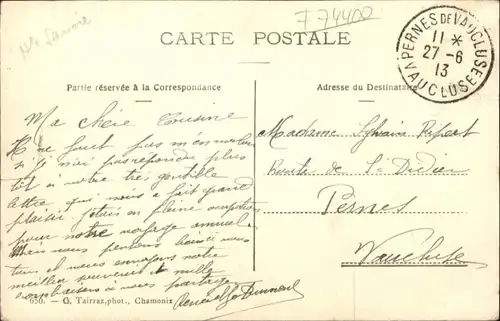 Hte Savoie
F74400
CARTE POSTALE
PERNES DE VAUCLUSE
11 *
27-6
13
VAUCLUSE
Partie réservée à la Correspondance
Adresse du Destinataire
Ma chère Cousine
Il ne faut pas m'en vouloir
si je n'ai pas répondu plus
tôt à votre très gentille
lettre qui nous a fait grand
plaisir j'étais en pleine
pour notre voyage annuel
Mais nous pensons bien à vous
et nous envoyons notre
meilleur souvenir et mille
embrassées à vous partager
Madame Sylvain
Route de St Didier
Pernes
Vaucluse
650. - G. Tairraz, phot., Chamonix